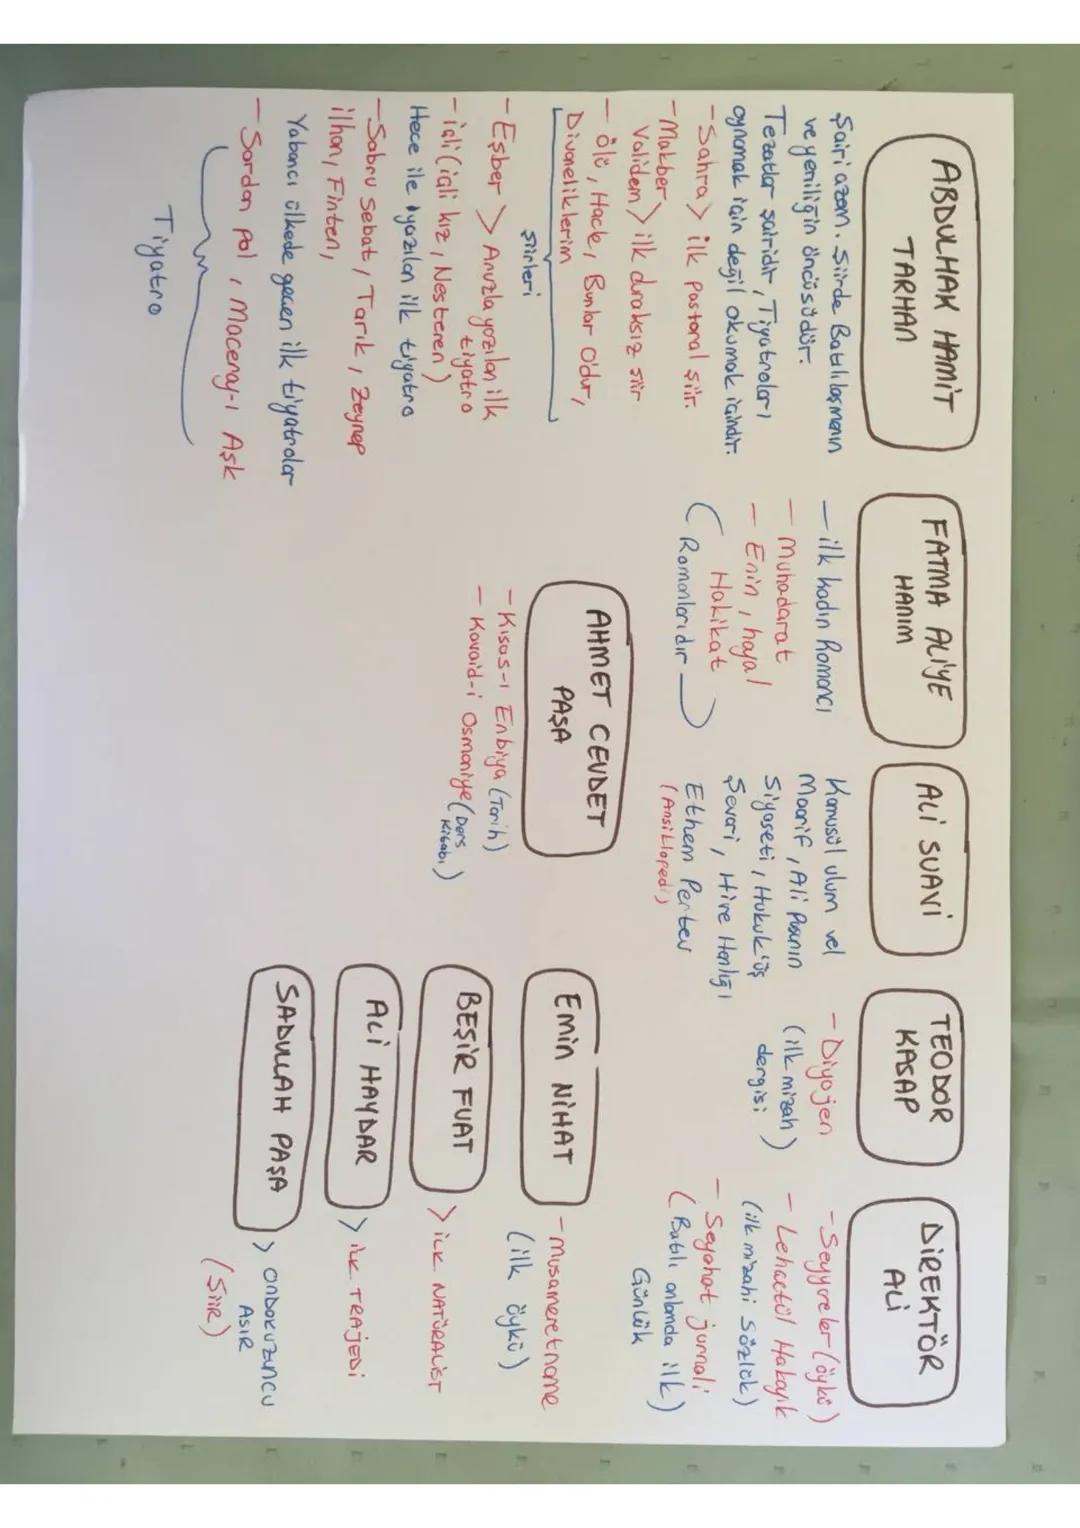 ABDULHAK HAMİT
TARHAN
Şairi azam. Şiirde Batılılaşmanın
ve yeniliğin öncüsüdür.
Tezatlar şairidir, Tiyatroları
oynamak için değil okumak içindir.
- Sahra > ilk pastoral şiir.
- Makber
Validem > ilk duraksız şiir
- Ölü, Hacle, Bunlar O'dur,
Divaneliklerim
şiirleri
- Eşber > Aruzla yazılan ilk
tiyatro
- içli (içli kız, Nesteren)
Hece ile yazılan ilk tiyatro
- Sabru Sebat, Tarık, Zeynep
ilhan, Finten,
Yabancı ülkede geçen ilk tiyatrolar
- Sardan pal, Maceray-ı Aşk
Tiyatro
FATMA ALİYE
HANIM
- ilk kadın Romancı
- Muhadarat
- Enin, hayal
Hakikat
(Romanlarıdır)
ALİ SUAVİ
Kamusül ulum vel
Maarif, Ali Paşanın
Siyaseti, Hukuk'üş
Şevari, Hive Hanlığı
Ethem Pertev
(Ansiklopedi)
TEODOR
KASAP
- Diyojen
(ilk mizah)
dergisi
DİREKTÖR
ALİ
- Seyyareler (öykü)
- Lehactül Hakayık
(ilk mizahi sözlük)
- Seyahat jurnali
(Batılı anlamda ilk)
Günlük
AHMET CEVDET
PAŞA
- Kısas-ı Enbiya (Tarih)
- Kavaid-i Osmaniye (Ders
Kitabı)
Emin NİHAT
- Musameretname
(ilk öykü)
BEŞİR FUAT
> iLK NATÜRALİST
ALİ HAYDAR
> iLK TRAJEDİ
SADULLAH PAŞA
> ONDOKUZUNCU
ASIR
(ŞİİR)